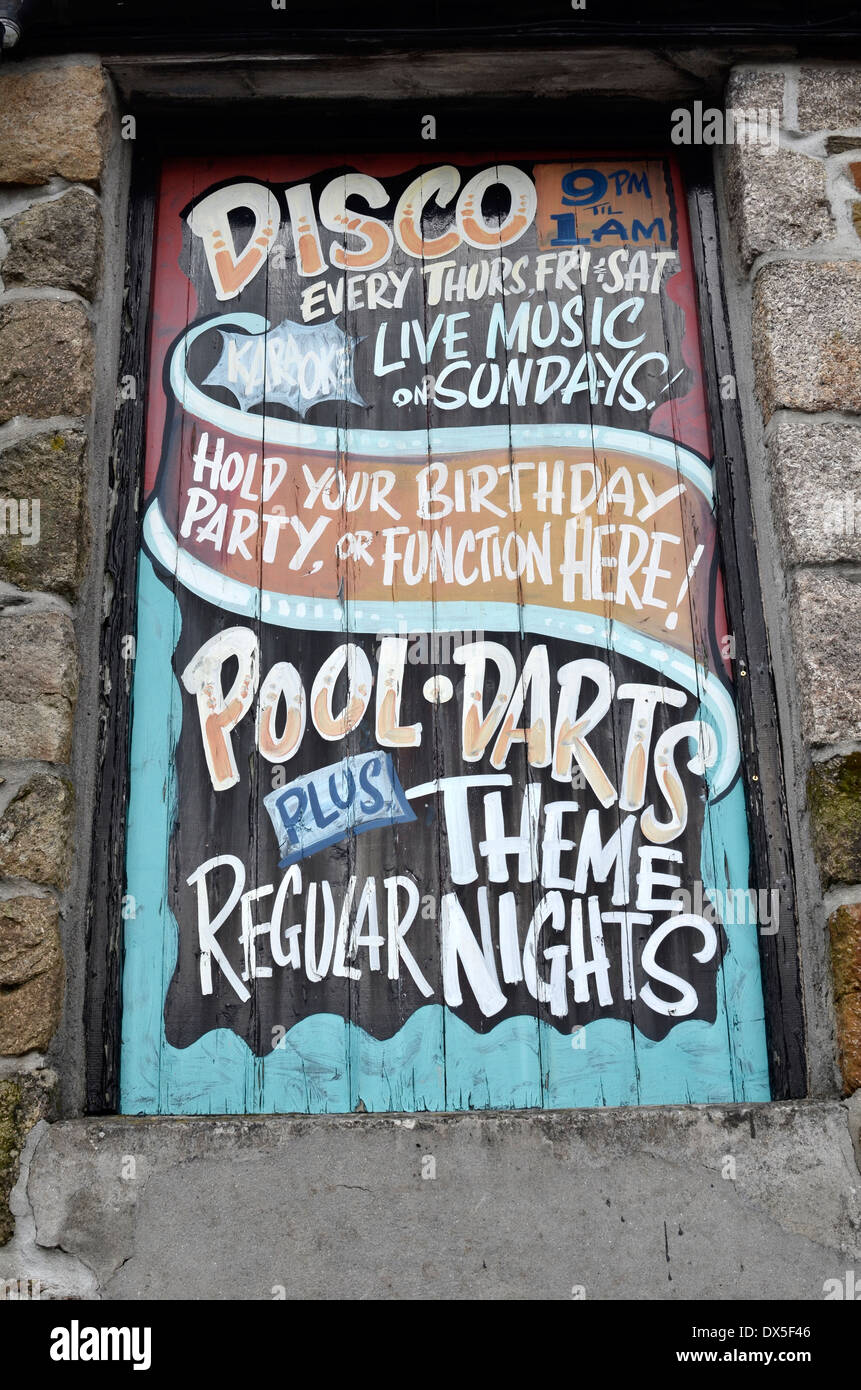 DISCO
9PM
TIL
1AM
EVERY THURS, FRI & SAT
KARAOKE
LIVE MUSIC
ON SUNDAYS!
HOLD YOUR BIRTHDAY
PARTY, OR FUNCTION HERE!
POOL · DARTS
PLUS
THEME
REGULAR NIGHTS
alamy
Image ID: DX5F46
www.alamy.com